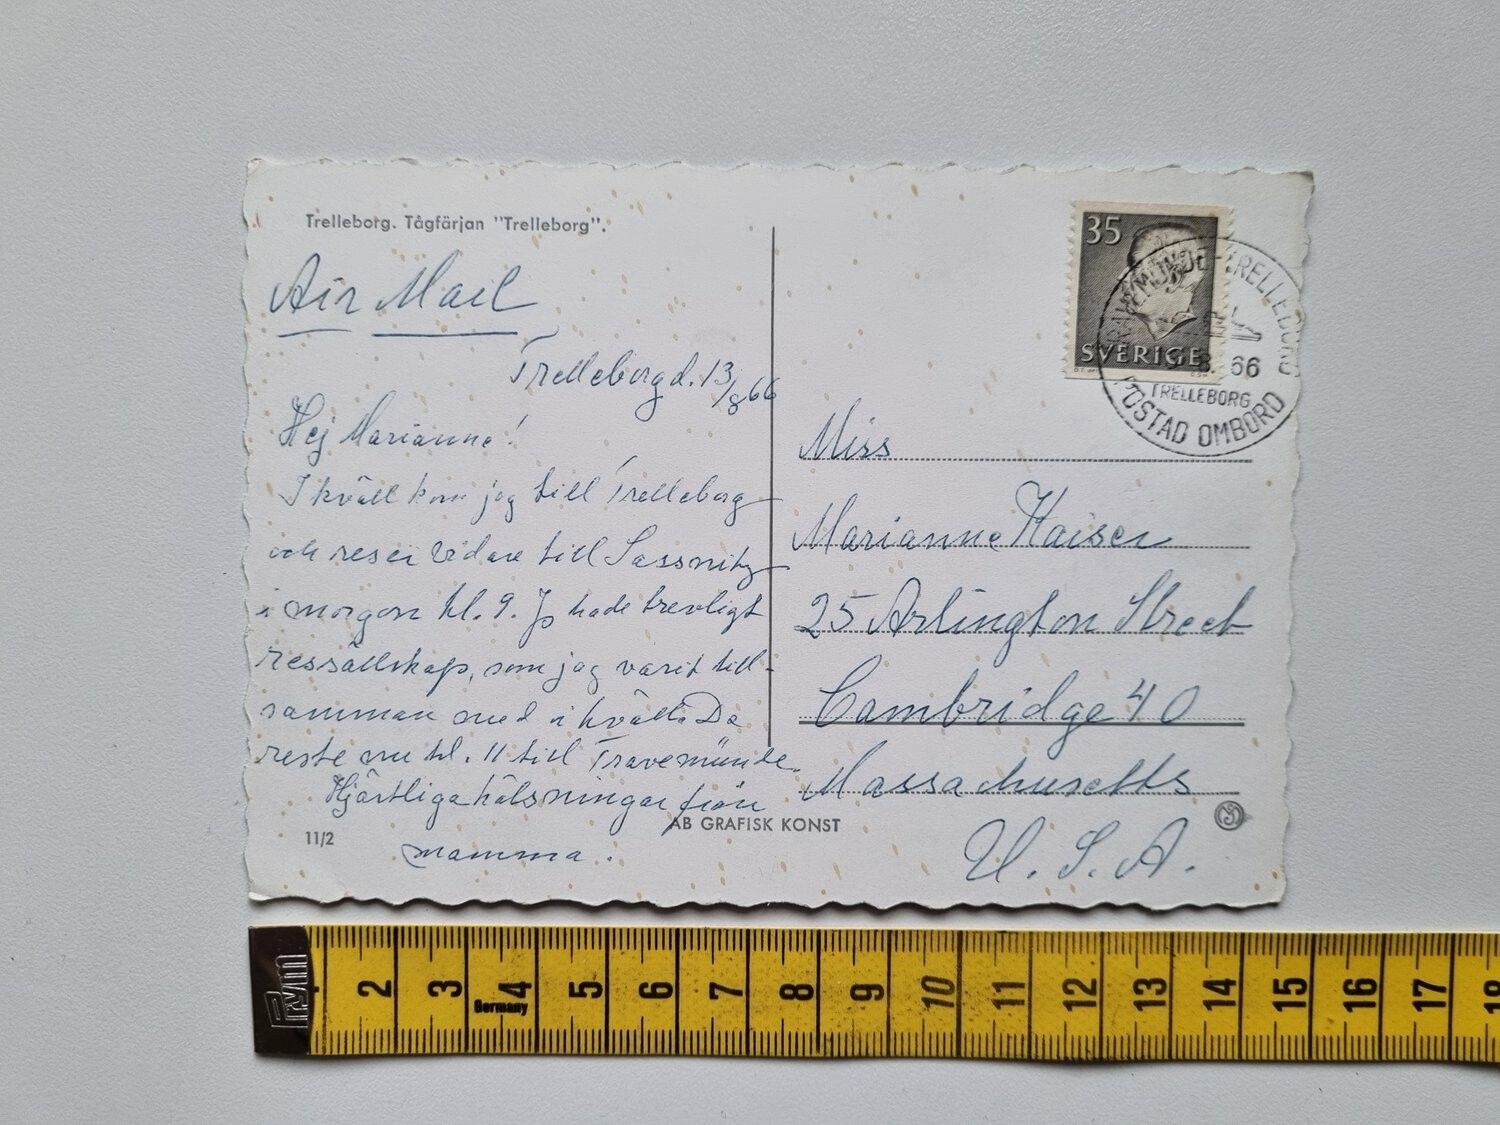 Trelleborg. Tågfärjan "Trelleborg".
Air Mail
Trelleborg d. 13/8 66
Hej Marianne!
I kväll kom jag till Trelleborg
och reser vidare till Sassnitz
i morgon kl. 9. Jg hade trevligt
ressällskap, som jag varit till-
samman med i kväll. De
reste nu kl. 11 till Travemünde.
Hjärtliga hälsningar från
mamma.
11/2
AB GRAFISK KONST
35
SVERIGE
TRELLEBORG
66
TRELLEBORG
POSTAD OMBORD
Miss
Marianne Kaiser
25 Arlington Street
Cambridge 40
Massachusetts
U. S. A.
Prym
Germany
2 3 4 5 6 7 8 9 10 11 12 13 14 15 16 17 18